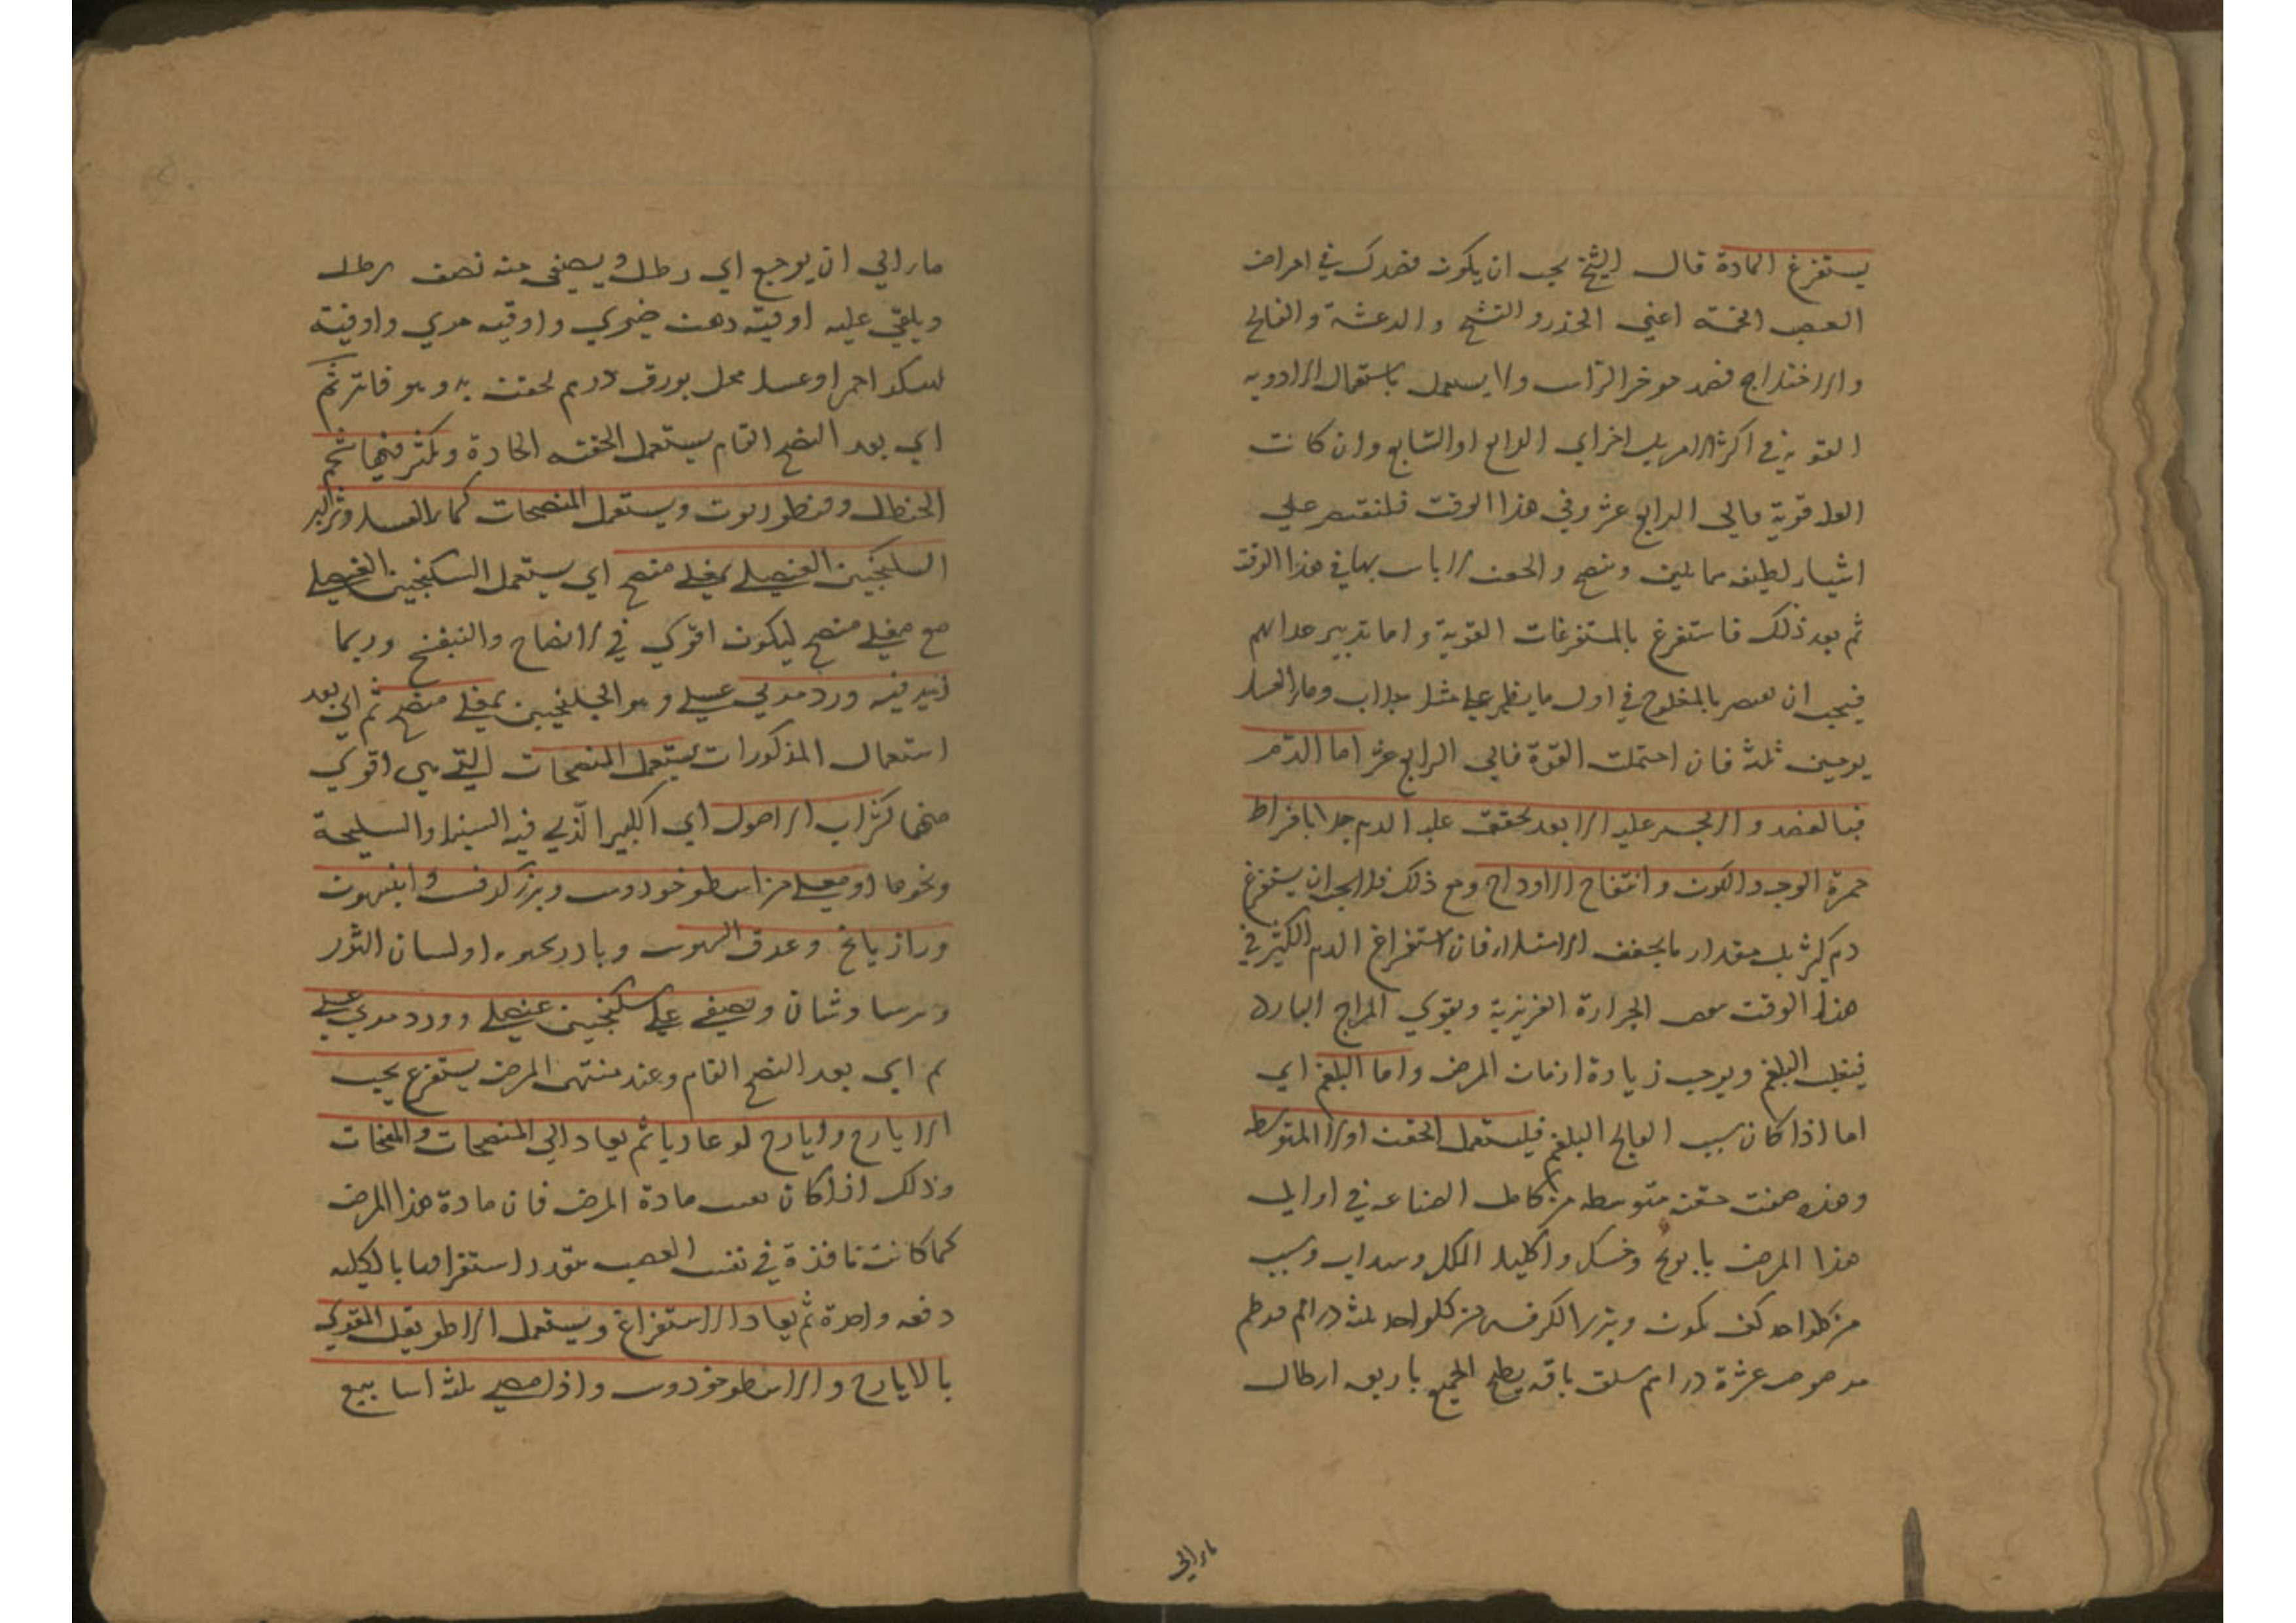 يستفرغ المادة قال الشيخ يجب ان يكون قصدك في امراض
العصب الخمسة اعني الخدر و التشنج و الرعشة و الفالج
والاختلاج قصد موخر الراس ولا يستعمل باستعمال الادويه
القوية في اكثر الامر بل اخر اي الرابع او السابع وان كانت
العلة قوية فالى الرابع عشر وفي هذا الوقت فلنقتصر على
اشياء لطيفه مما يلين وينضج و الحقن لا باس بها في هذا الوقت
ثم بعد ذلك فاستفرغ بالمستفرغات القوية و اما تدبير غذائهم
فيجب ان يقتصر بالمفلوج في اول ما يظهر على مثل جلاب وماء العسل
يومين ثلثة فان احتملت القوة فالى الرابع عشر اما الدم
فبالفصد و لا يجسر عليه الا بعد تحقق غلبة الدم جدا بافراط
حمرة الوجه و اللون و انتفاخ الاوداج ومع ذلك فلا يجب ان يستفرغ
دم كثير بل مقدار ما يخفف الامتلاء فان استفراغ الدم الكثير في
هذا الوقت الحرارة الغريزية ويقوي المزاج البارد
البلغم ويوجب زيادة ازمان المرض واما البلغم اي
اما اذا كان سبب الفالج البلغم فليستعمل الحقن اولا المتوسطه
وهذه صفت حقنه متوسطه من كامل الصناعه في اوايل
هذا المرض بابونج وخسك واكليل الملك وسداب
من كلواحد كف كمون وبزر الكرفس من كلواحد ثلثة دراهم قرطم
مرضوض عشرة دراهم سلق باقه يطبخ الجميع باربعه ارطال
ماء الي
ماء الي ان يرجع اي رطل ويصفى منه نصف رطل
ويلقي عليه اوقيه دهن خيري و اوقيه مري واوقية
سكر احمر او عسل نحل بورق درهم يحقن به وهو فاتر ثم
اي بعد النضج التام يستعمل الحقنه الحادة ويكثر فيها شحم
الحنظل وقنطوريون ويستعمل المنضجات كماء العسل و
السكنجبين العنصلي بمغلي منضج اي يستعمل السكنجبين العنصلي
مع مغلي منضج ليكون اقوي في الانضاج والتفتيح وربما
زيد فيه ورد مربي عسلي و هو الجلنجبين بمغلي منضج ثم اي بعد
استعمال المذكورات يستعمل المنضجات التي هي اقوي
منها كشراب الاصول اي الكبير الذي فيه السنبل والسليخة
ونحوها او مغلي من اسطوخودوس وبزر كرفس و انيسون
ورازيانج وعرق السوس وبادرنجبويه او لسان الثور
وبرسياوشان ويصفي على سكنجبين عنصلي وورد مربي عسلي
ثم اي بعد النضج التام وعند منتهى المرض يستفرغ بحب
الايارج وايارج لوغاديا ثم يعاد الي المنضجات والمفتحات
وذلك اذا كان مادة المرض فان مادة هذا المرض
كما كانت نافذة في نفس العصب استفراغها بالكليه
دفعه واحدة ثم يعاد الاستفراغ ويستعمل الاطريفل المقوي
بالايارج و الاسطوخودوس واذا مضي ثلثة اسابيع